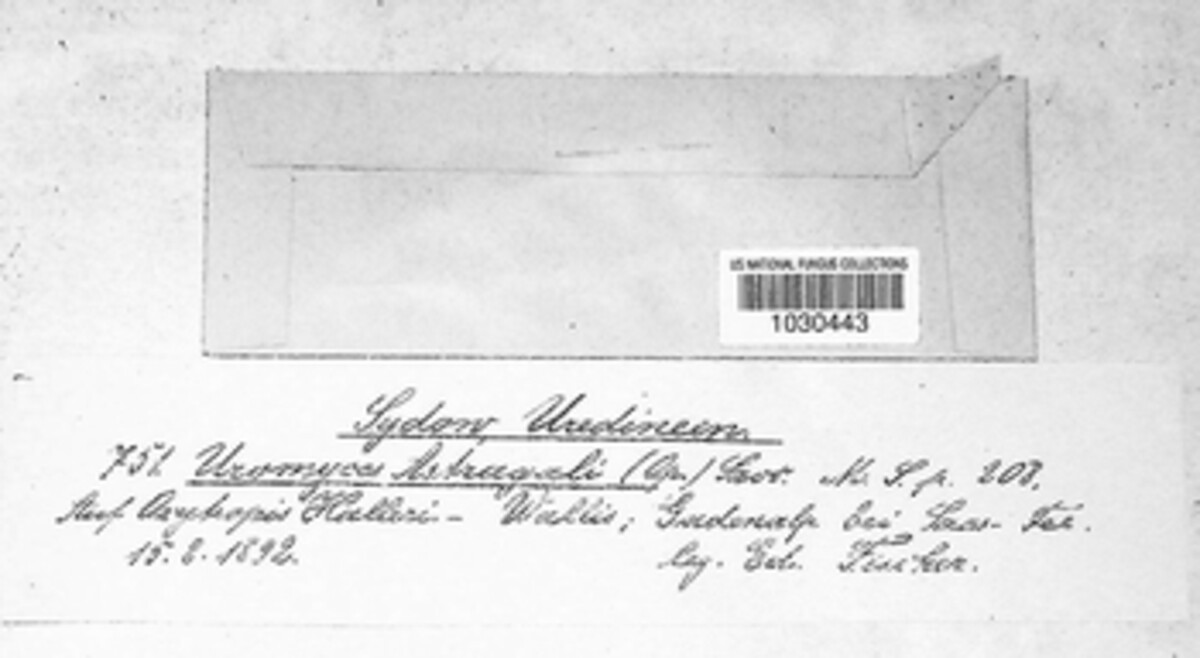 US NATIONAL FUNGUS COLLECTIONS
1030443
Sydow, Uredineen.
751. Uromyces Astragali (Op.) Sacc. M. S. p. 208.
Auf Oxytropis Halleri – Wallis; Gadenalp bei Saas-Fee.
15. 8. 1892. leg. Ed. Fischer.